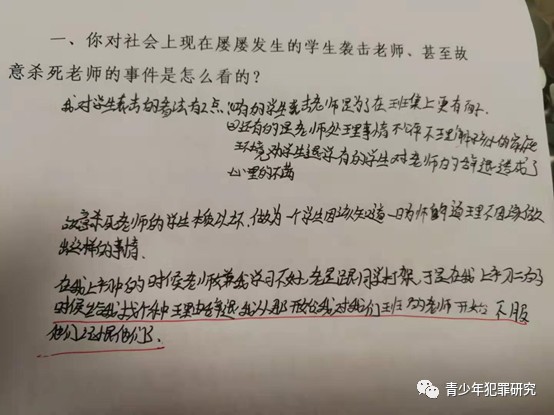 一、你对社会上现在屡屡发生的学生袭击老师、甚至故
意杀死老师的事件是怎么看的？
我对学生袭击的看法有2点：①有的学生袭击老师是为了在班集上更有面。
②还有的是老师处理事情不公平不理解孩子的家庭
环境劝学生退学有的学生对老师的劝退造成了
心里的不满
故意杀死老师的学生本质以坏，做为一个学生因该知道一日为师的道理不因该做
出这样的事情。
在我上初中的时候老师嫌我学习不好，老是跟同学打架，于是在我上初二的
时候生给我找个种理由劝退我从那开始我对我们王班的老师开始不服
他们还恨他们了。
青少年犯罪研究